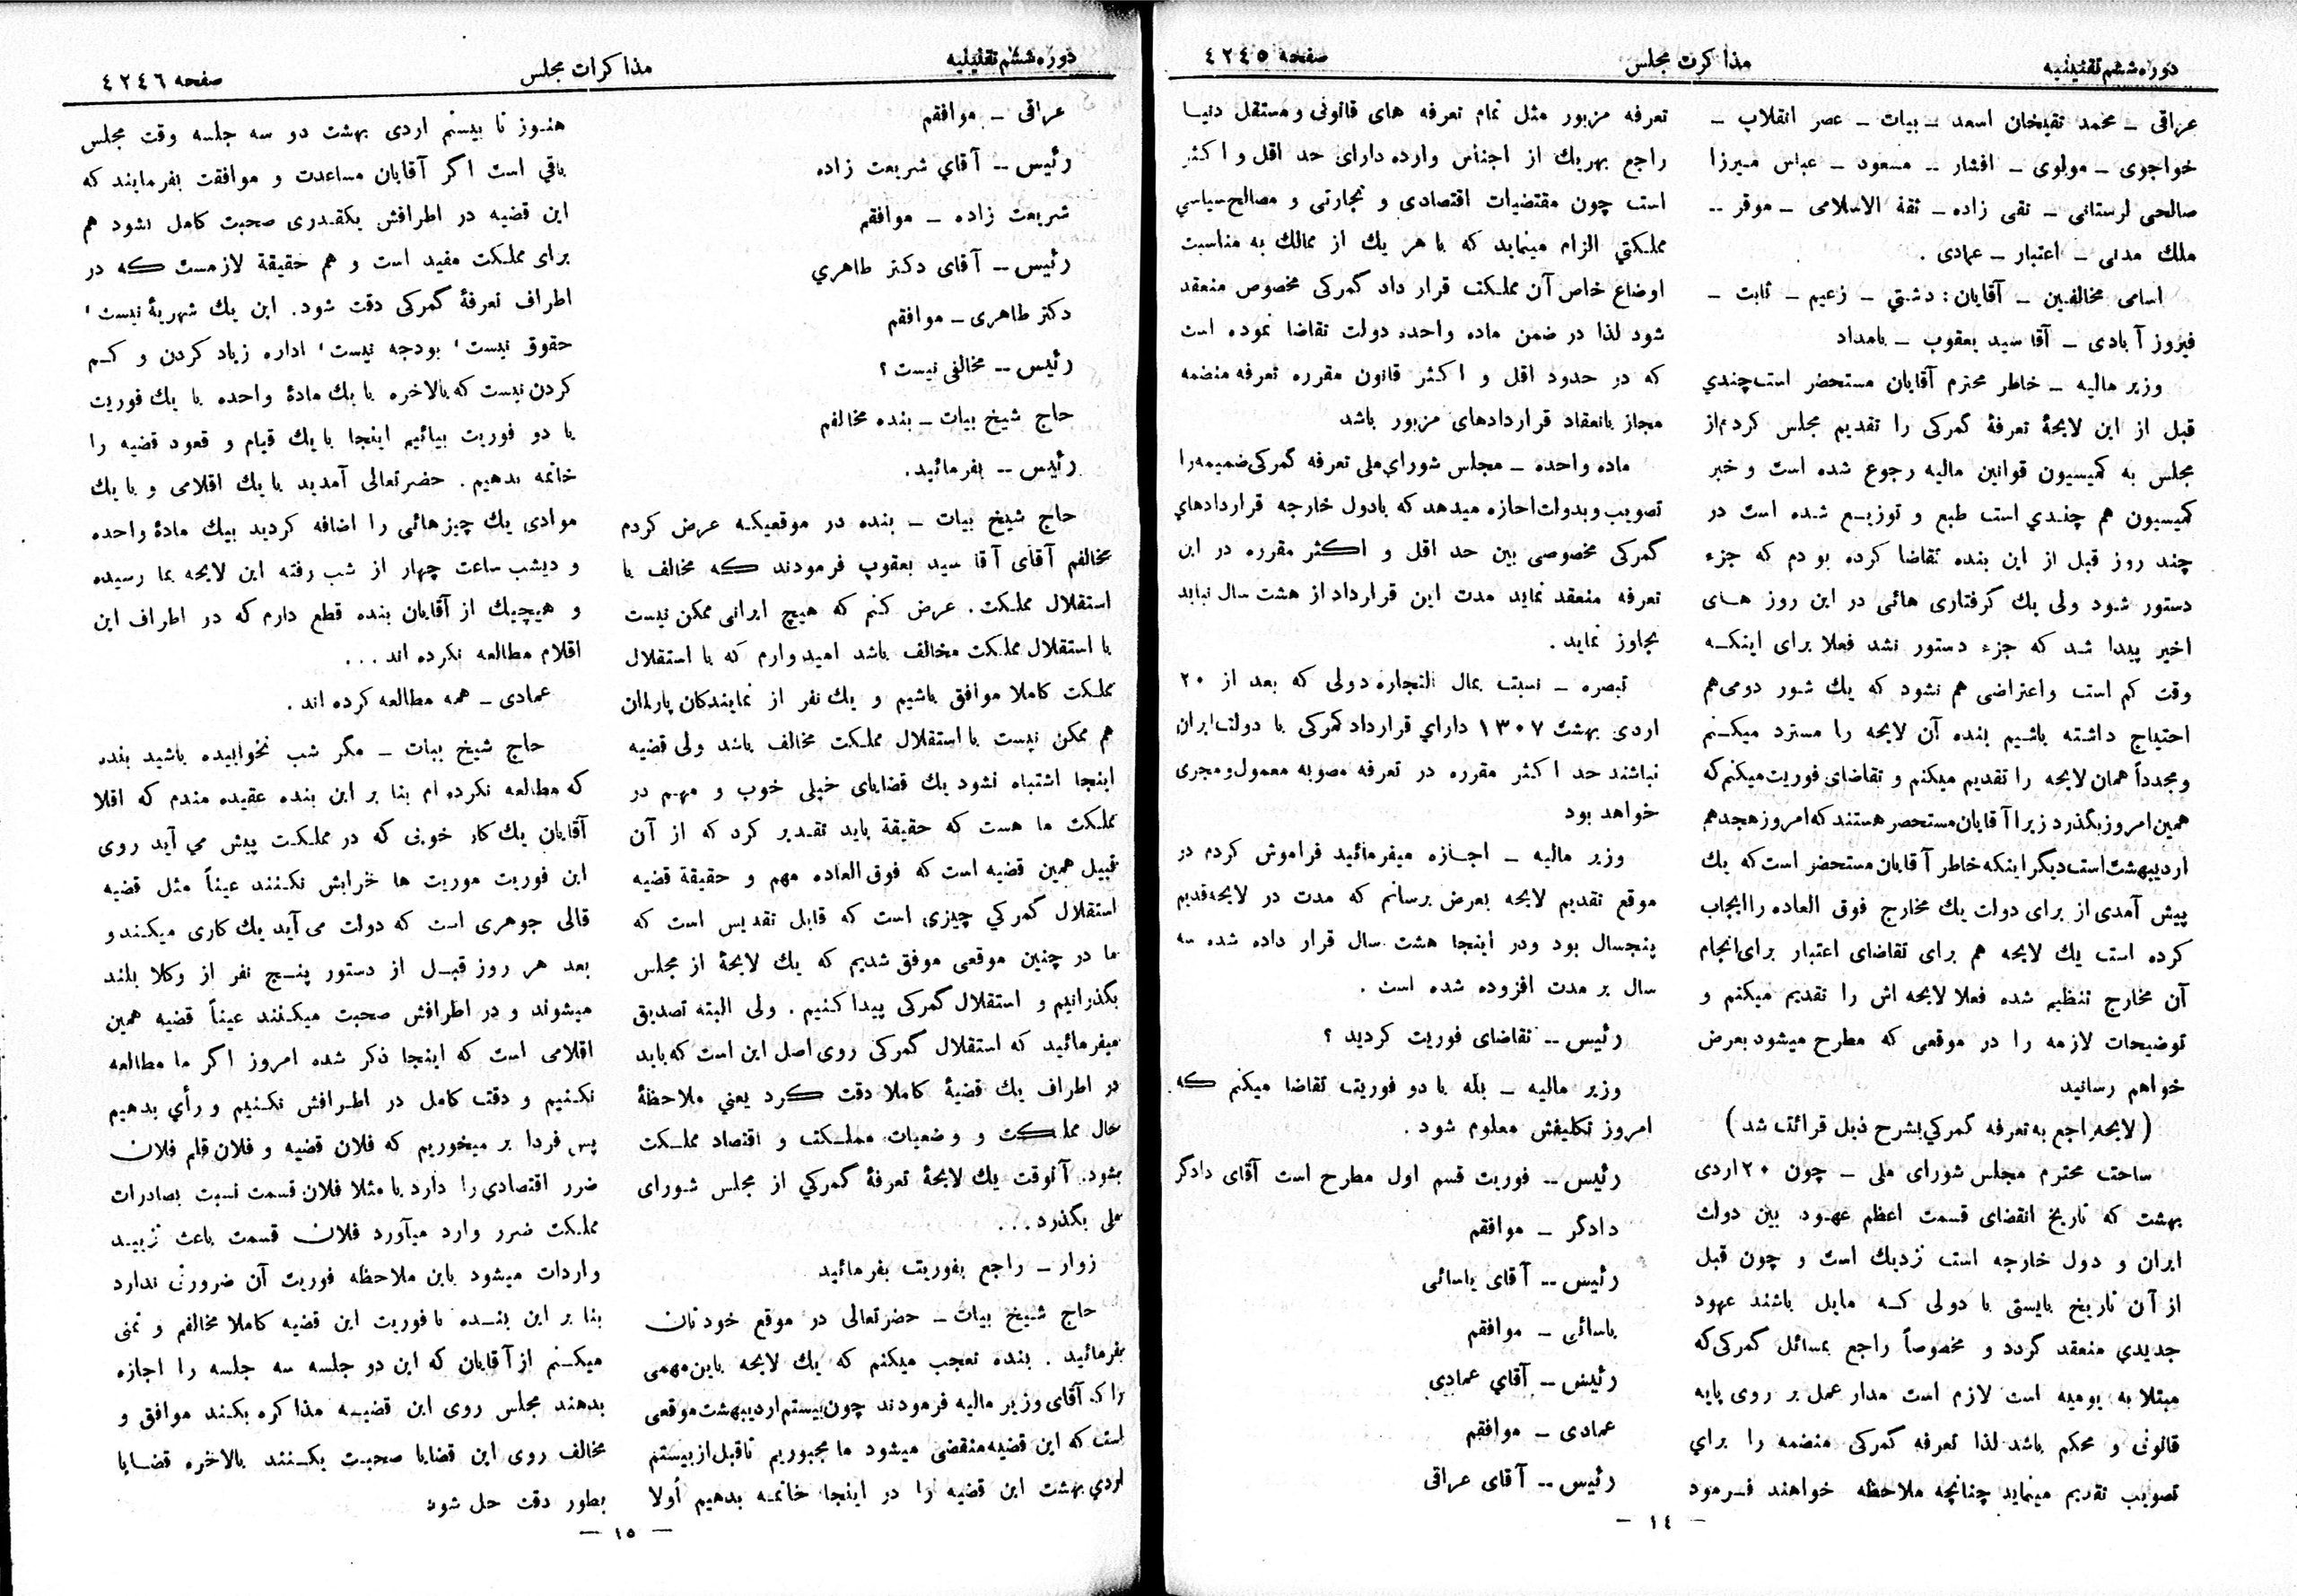 دوره ششم تقنینیه
مذاکرت مجلس
صفحه ٤٢٤٥
عراقی ــ محمد تقیخان اسعد ــ بیات ــ عصر انقلاب ــ
خواجوی ــ مولوی ــ افشار ــ مسعود ــ عباس میرزا
صالحی لرستانی ــ تقی زاده ــ ثقة الاسلامی ــ موقر ــ
ملك مدنی ــ اعتبار ــ عمادی .
اسامی مخالفین ــ آقایان : دشتي ــ زعیم ــ ثابت ــ
فیروز آبادی ــ آقا سید یعقوب ــ بامداد
وزیر مالیه ــ خاطر محترم آقایان مستحضر است چندي
قبل از این لایحۀ تعرفۀ گمرکی را تقدیم مجلس کردم از
مجلس به کمیسیون قوانین مالیه رجوع شده است و خبر
کمیسیون هم چندي است طبع و توزیع شده است در
چند روز قبل از این بنده تقاضا کرده بودم که جزء
دستور شود ولی یك گرفتاری هائی در این روز های
اخیر پیدا شد که جزء دستور نشد فعلا برای اینکه
وقت کم است و اعتراضی هم نشود که یك شور دومی هم
احتیاج داشته باشیم بنده آن لایحه را مسترد میکنم
و مجدداً همان لایحه را تقدیم میکنم و تقاضای فوریت میکنم که
همین امروز بگذرد زیرا آقایان مستحصر هستند که امروز هجدهم
اردیبهشت است دیگر اینکه خاطر آقایان مستحضر است که یك
پیش آمدی از برای دولت یك مخارج فوق العاده را ایجاب
کرده است یك لایحه هم برای تقاضای اعتبار برای انجام
آن مخارج تنظیم شده فعلا لایحه اش را تقدیم میکنم و
توضیحات لازمه را در موقعی که مطرح میشود بعرض
خواهم رسانید
( لایحه راجع به تعرفه گمرکي بشرح ذیل قرائت شد )
ساحت محترم مجلس شورای ملی ــ چون ٢٠ اردی
بهشت که تاریخ انقضای قسمت اعظم عهود بین دولت
ایران و دول خارجه است نزدیك است و چون قبل
از آن تاریخ بایستی با دولی که مایل باشند عهود
جدیدي منعقد گردد و مخصوصاً راجع بمسائل گمرکی که
مبتلا به یومیه است لازم است مدار عمل بر روی پایه
قانونی و محکم باشد لذا تعرفه گمرکی منضمه را براي
تصویب تقدیم مینماید چنانچه ملاحظه خواهند فرمود
تعرفه مزبور مثل تمام تعرفه های قانونی و مستقل دنیا
راجع بهریك از اجناس وارده دارای حد اقل و اکثر
است چون مقتضیات اقتصادی و تجارتی و مصالح سیاسي
مملکتي الزام مینماید که با هر یك از ممالك به مناسبت
اوضاع خاص آن مملکت قرار داد گمرکی مخصوص منعقد
شود لذا در ضمن ماده واحده دولت تقاضا نموده است
که در حدود اقل و اکثر قانون مقرره تعرفه منضمه
مجاز بانعقاد قراردادهای مزبور باشد
ماده واحده ــ مجلس شورای ملی تعرفه گمرکی ضمیمه را
تصویب و بدولت اجازه میدهد که با دول خارجه قراردادهاي
گمرکی مخصوصی بین حد اقل و اکثر مقرره در این
تعرفه منعقد نماید مدت این قرارداد از هشت سال نباید
تجاوز نماید .
تبصره ــ نسبت بمال التجاره دولی که بعد از ٢٠
اردی بهشت ١٣٠٧ داراي قرارداد گمرکی با دولت ایران
نباشند حد اکثر مقرره در تعرفه مصوبه معمول و مجری
خواهد بود
وزیر مالیه ــ اجازه میفرمائید فراموش کردم در
موقع تقدیم لایحه بعرض برسانم که مدت در لایحه قدیم
پنجسال بود و در اینجا هشت سال قرار داده شده سه
سال بر مدت افزوده شده است .
رئیس ــ تقاضای فوریت کردید ؟
وزیر مالیه ــ بله با دو فوریت تقاضا میکنم که
امروز تکلیفش معلوم شود .
رئیس ــ فوریت قسم اول مطرح است آقای دادگر
دادگر ــ موافقم
رئیس ــ آقای یاسائی
یاسائی ــ موافقم
رئیس ــ آقاي عمادی
عمادی ــ موافقم
رئیس ــ آقای عراقی
ــ ١٤ ــ
دوره ششم تقنینیه
مذاکرات مجلس
صفحه ٤٢٤٦
عراقی ــ موافقم
رئیس ــ آقاي شریعت زاده
شریعت زاده ــ موافقم
رئیس ــ آقای دکتر طاهري
دکتر طاهری ــ موافقم
رئیس ــ مخالفی نیست ؟
حاج شیخ بیات ــ بنده مخالفم
رئیس ــ بفرمائید .
حاج شیخ بیات ــ بنده در موقعیکه عرض کردم
مخالفم آقای آقا سید یعقوب فرمودند که مخالف با
استقلال مملکت . عرض کنم که هیچ ایرانی ممکن نیست
با استقلال مملکت مخالف باشد امیدوارم که با استقلال
مملکت کاملا موافق باشیم و یك نفر از نمایندکان پارلمان
هم ممکن نیست با استقلال مملکت مخالف باشد ولی قضیه
اینجا اشتباه نشود یك قضایای خیلی خوب و مهم در
مملکت ما هست که حقیقة باید تقدیر کرد که از آن
قبیل همین قضیه است که فوق العاده مهم و حقیقة قضیه
استقلال گمرکي چیزی است که قابل تقدیس است که
ما در چنین موقعی موفق شدیم که یك لایحۀ از مجلس
بگذرانیم و استقلال گمرکی پیدا کنیم . ولی البته تصدیق
میفرمائید که استقلال گمرکی روی اصل این است که باید
در اطراف یك قضیۀ کاملا دقت کرد یعني ملاحظۀ
حال مملکت و وضعیات مملکت و اقتصاد مملکت
بشود. آنوقت یك لایحۀ تعرفۀ گمرکي از مجلس شورای
ملی بگذرد . . .
زوار ــ راجع بفوریت بفرمائید
حاج شیخ بیات ــ حضرتعالی در موقع خودتان
بفرمائید . بنده تعجب میکنم که یك لایحه باین مهمی
را که آقای وزیر مالیه فرمودند چون بیستم اردیبهشت موقعی
است که این قضیه منقضی میشود ما مجبوریم تا قبل از بیستم
اردي بهشت این قضیه را در اینجا خاتمه بدهیم اولا
هنوز تا بیستم اردی بهشت دو سه جلسه وقت مجلس
باقي است اگر آقایان مساعدت و موافقت بفرمایند که
این قضیه در اطرافش یکقدری صحبت کامل بشود هم
برای مملکت مفید است و هم حقیقة لازمست که در
اطراف تعرفۀ گمرکی دقت شود. این یك شهریۀ نیست ،
حقوق نیست ، بودجه نیست ، اداره زیاد کردن و کم
کردن نیست که بالاخره با یك مادۀ واحده با یك فوریت
با دو فوریت بیائیم اینجا با یك قیام و قعود قضیه را
خاتمه بدهیم . حضرتعالی آمدید با یك اقلامی و با یك
موادی یك چیزهائی را اضافه کردید بیك مادۀ واحده
و دیشب ساعت چهار از شب رفته این لایحه بما رسیده
و هیچیك از آقایان بنده قطع دارم که در اطراف این
اقلام مطالعه نکرده اند . . .
عمادی ــ همه مطالعه کرده اند .
حاج شیخ بیات ــ مگر شب نخوابیده باشید بنده
که مطالعه نکرده ام بنا بر این بنده عقیده مندم که اقلا
آقایان یك کار خوبی که در مملکت پیش می آید روی
این فوریت موریت ها خرابش نکنند عیناً مثل قضیه
قالی جوهری است که دولت می آید یك کاری میکند و
بعد هر روز قبل از دستور پنج نفر از وکلا بلند
میشوند و در اطرافش صحبت میکنند عیناً قضیه همین
اقلامی است که اینجا ذکر شده امروز اگر ما مطالعه
نکنیم و دقت کامل در اطرافش نکنیم و رأي بدهیم
پس فردا بر میخوریم که فلان قضیه و فلان قلم فلان
ضرر اقتصادی را دارد یا مثلا فلان قسمت نسبت بصادرات
مملکت ضرر وارد میآورد فلان قسمت باعث تزیید
واردات میشود باین ملاحظه فوریت آن ضرورتی ندارد
بنا بر این بنده با فوریت این قضیه کاملا مخالفم و تمنی
میکنم از آقایان که این دو جلسه سه جلسه را اجازه
بدهند مجلس روی این قضیه مذاکره بکند موافق و
مخالف روی این قضایا صحبت بکنند بالاخره قضایا
بطور دقت حل شود
ــ ١٥ ــ